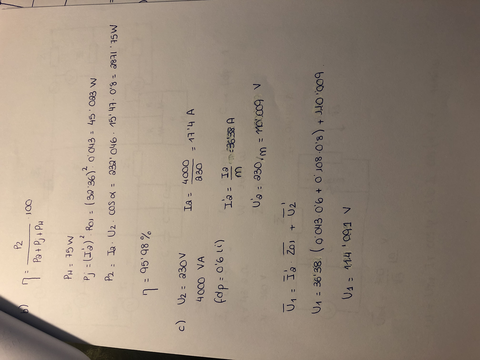 b) η = P2 / (P2 + PJ + PH) · 100
PH = 75 W
PJ = (I'2)² R01 = (32'36)² 0'043 = 45'023 W
P2 = I2 U2 cos α = 232'046 · 15'47 · 0'8 = 2871'75W
η = 95'98 %
c) U2 = 230 V I2 = 4000 / 230 = 17'4 A
4000 VA
fdp = 0'6 (i) I'2 = I2 / m = 36'38 A
U'2 = 230/m = 110'009 V
U1 = I'2 Z01 + U'2
U1 = 36'38 · (0'043 0'6 + 0'108 · 0'8) + 110'009
U1 = 114'091 V